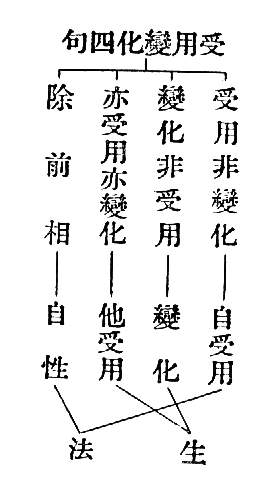 受用變化四句
受用非變化
自受用
變化非受用
變化
亦受用亦變化
他受用
除前相
自性
生
法